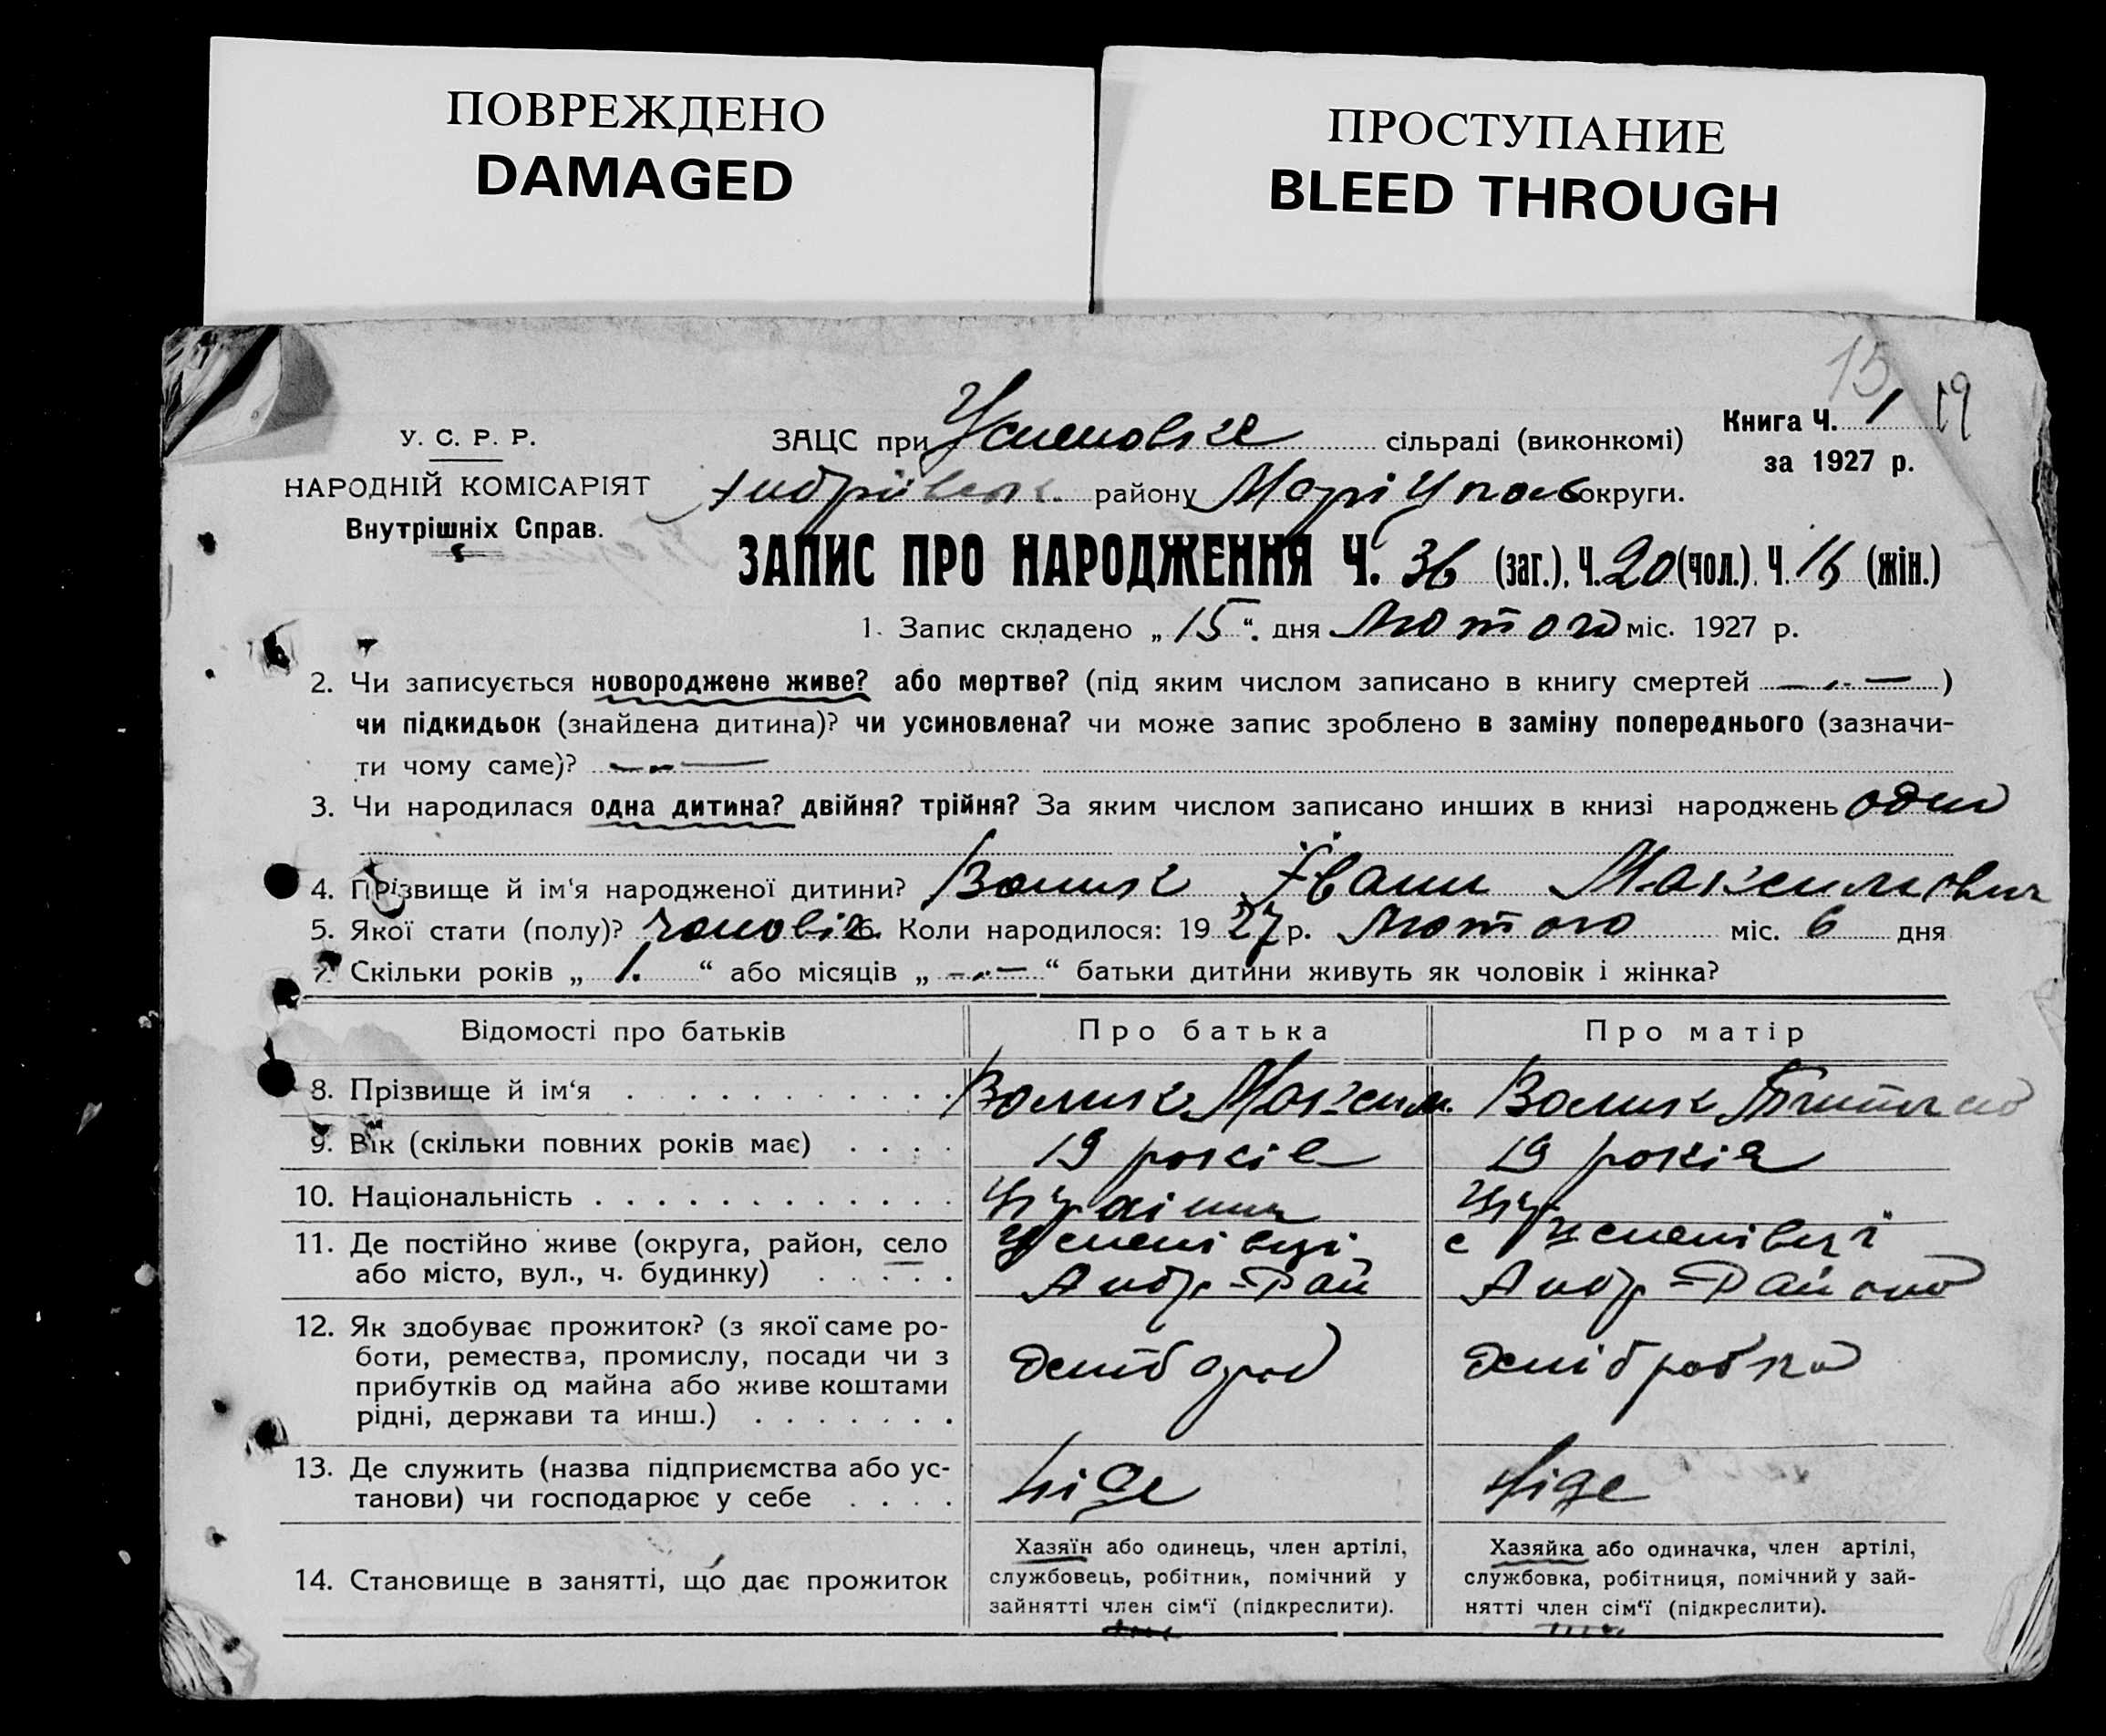 ПОВРЕЖДЕНО
DAMAGED
ПРОСТУПАНИЕ
BLEED THROUGH
15
19
У. С. Р. Р.
НАРОДНІЙ КОМІСАРІЯТ
Внутрішніх Справ.
ЗАЦС при Успеновке сільраді (виконкомі)
району Маріупол округи.
Книга Ч. 1
за 1927 р.
ЗАПИС ПРО НАРОДЖЕННЯ Ч. 36 (заг.), Ч. 20 (чол.), Ч. 16 (жін.)
1. Запис складено „ 15 “ дня Лютого міс. 1927 р.
2. Чи записується новороджене живе? або мертве? (під яким числом записано в книгу смертей — )
чи підкидьок (знайдена дитина)? чи усиновлена? чи може запис зроблено в заміну попереднього (зазначи-
ти чому саме)? —
3. Чи народилася одна дитина? двійня? трійня? За яким числом записано инших в книзі народжень один
4. Прізвище й ім‘я народженої дитини? Волик Іван Максимович
5. Якої стати (полу)? чоловік 6. Коли народилося: 1927 р. Лютого міс. 6 дня
7. Скільки років „ 1. “ або місяців „ — “ батьки дитини живуть як чоловік і жінка?
Відомості про батьків Про батька Про матір
8. Прізвище й ім‘я Волик Максим Волик
9. Вік (скільки повних років має) 19 років 19 років
10. Національність
11. Де постійно живе (округа, район, село
або місто, вул., ч. будинку)
Успенівці
Андр-Рай
с Успенівці
Андр-Района
12. Як здобуває прожиток? (з якої саме ро-
боти, ремества, промислу, посади чи з
прибутків од майна або живе коштами
рідні, держави та инш.)
13. Де служить (назва підприємства або ус-
танови) чи господарює у себе
ніде
ніде
14. Становище в занятті, що дає прожиток
Хазяїн або одинець, член артілі,
службовець, робітник, помічний у
зайнятті член сім‘ї (підкреслити).
Хазяйка або одиначка, член артілі,
службовка, робітниця, помічний у зай-
нятті член сім‘ї (підкреслити).